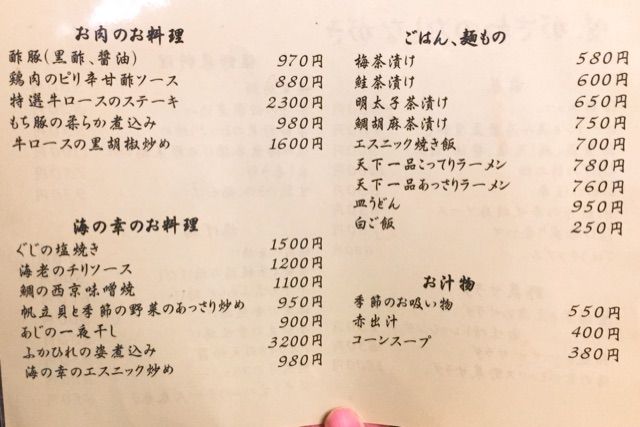 お肉のお料理
酢豚(黒酢、醤油) 970円
鶏肉のピリ辛甘酢ソース 880円
特選牛ロースのステーキ 2300円
もち豚の柔らか煮込み 980円
牛ロースの黒胡椒炒め 1600円
海の幸のお料理
ぐじの塩焼き 1500円
海老のチリソース 1200円
鯛の西京味噌焼 1100円
帆立貝と季節の野菜のあっさり炒め 950円
あじの一夜干し 900円
ふかひれの姿煮込み 3200円
海の幸のエスニック炒め 980円
ごはん、麺もの
梅茶漬け 580円
鮭茶漬け 600円
明太子茶漬け 650円
鯛胡麻茶漬け 750円
エスニック焼き飯 700円
天下一品こってりラーメン 780円
天下一品あっさりラーメン 760円
皿うどん 950円
白ご飯 250円
お汁物
季節のお吸い物 550円
赤出汁 400円
コーンスープ 380円